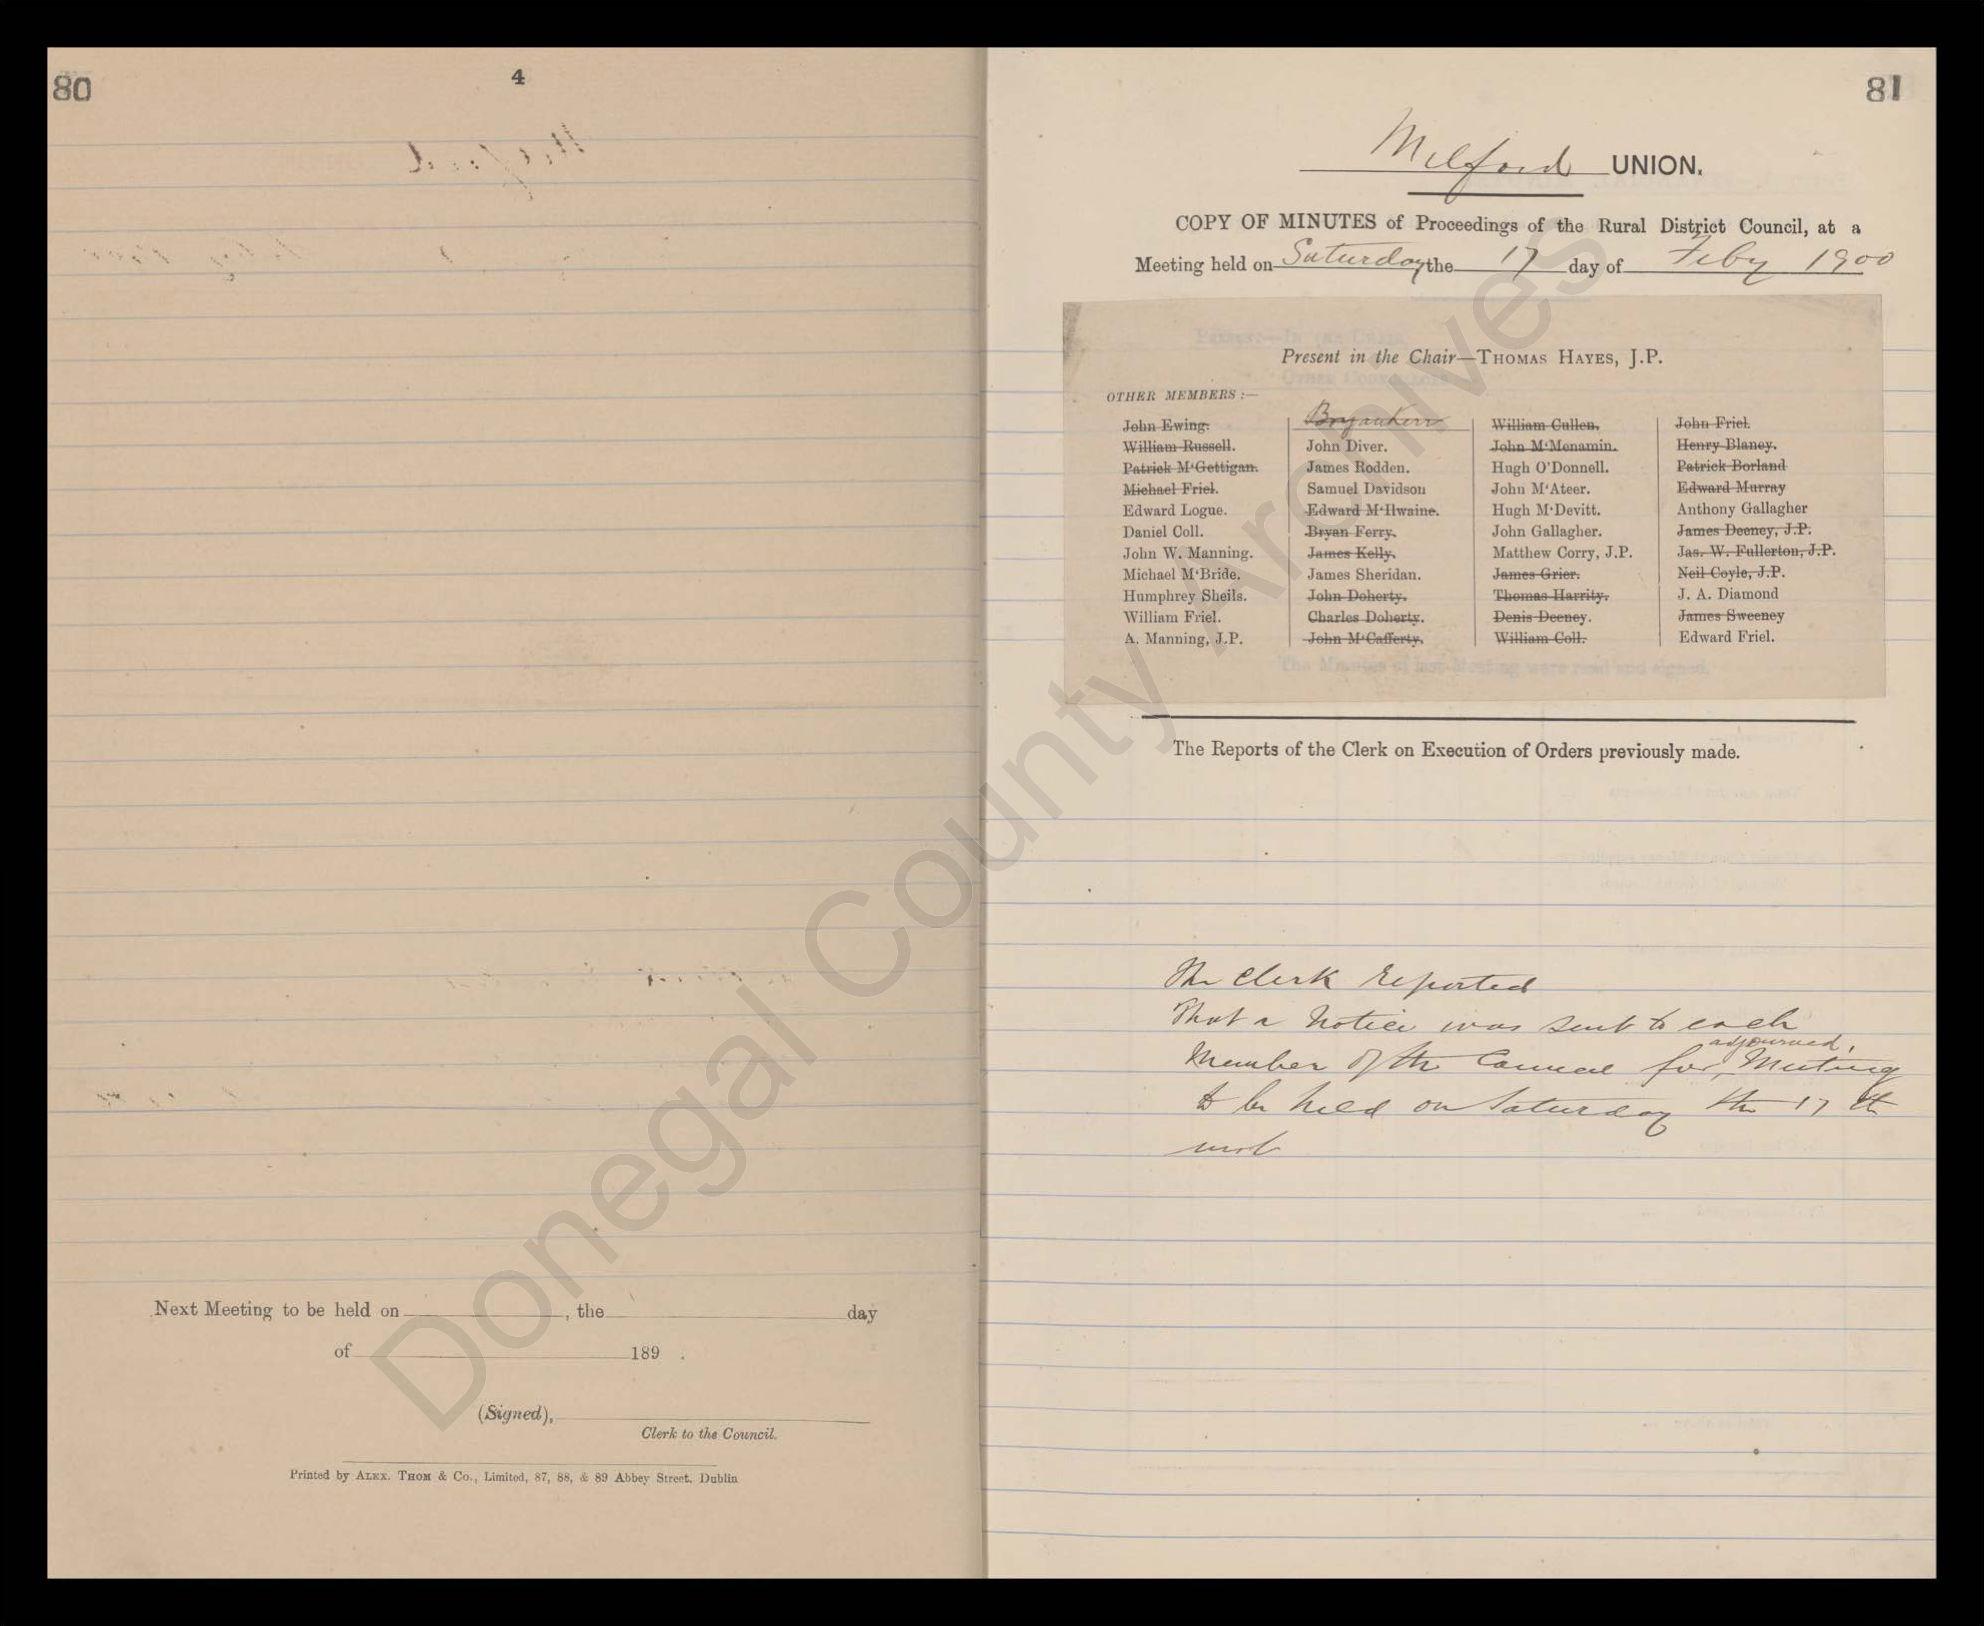 80
4
Next Meeting to be held on , the day
of 189 .
(Signed),
Clerk to the Council.
Printed by ALEX. THOM & Co., Limited, 87, 88, & 89 Abbey Street, Dublin
81
Milford UNION.
COPY OF MINUTES of Proceedings of the Rural District Council, at a
Meeting held on Saturday the 17 day of Feby 1900
Present in the Chair—THOMAS HAYES, J.P.
OTHER MEMBERS :—
John Ewing.
William Russell.
Patrick M'Gettigan.
Michael Friel.
Edward Logue.
Daniel Coll.
John W. Manning.
Michael M'Bride.
Humphrey Sheils.
William Friel.
A. Manning, J.P.
Bryan Kerr
John Diver.
James Rodden.
Samuel Davidson
Edward M'Ilwaine.
Bryan Ferry.
James Kelly.
James Sheridan.
John Doherty.
Charles Doherty.
John M'Cafferty.
William Cullen.
John M'Menamin.
Hugh O'Donnell.
John M'Ateer.
Hugh M'Devitt.
John Gallagher.
Matthew Corry, J.P.
James Grier.
Thomas Harrity.
Denis Deeney.
William Coll.
John Friel.
Henry Blaney.
Patrick Borland
Edward Murray
Anthony Gallagher
James Deeney, J.P.
Jas. W. Fullerton, J.P.
Neil Coyle, J.P.
J. A. Diamond
James Sweeney
Edward Friel.
The Minutes of last Meeting were read and signed.
The Reports of the Clerk on Execution of Orders previously made.
The Clerk reported
That a Notice was sent to each
Member of the Council for adjourned Meeting
to be held on Saturday the 17th
inst
Donegal County Archives